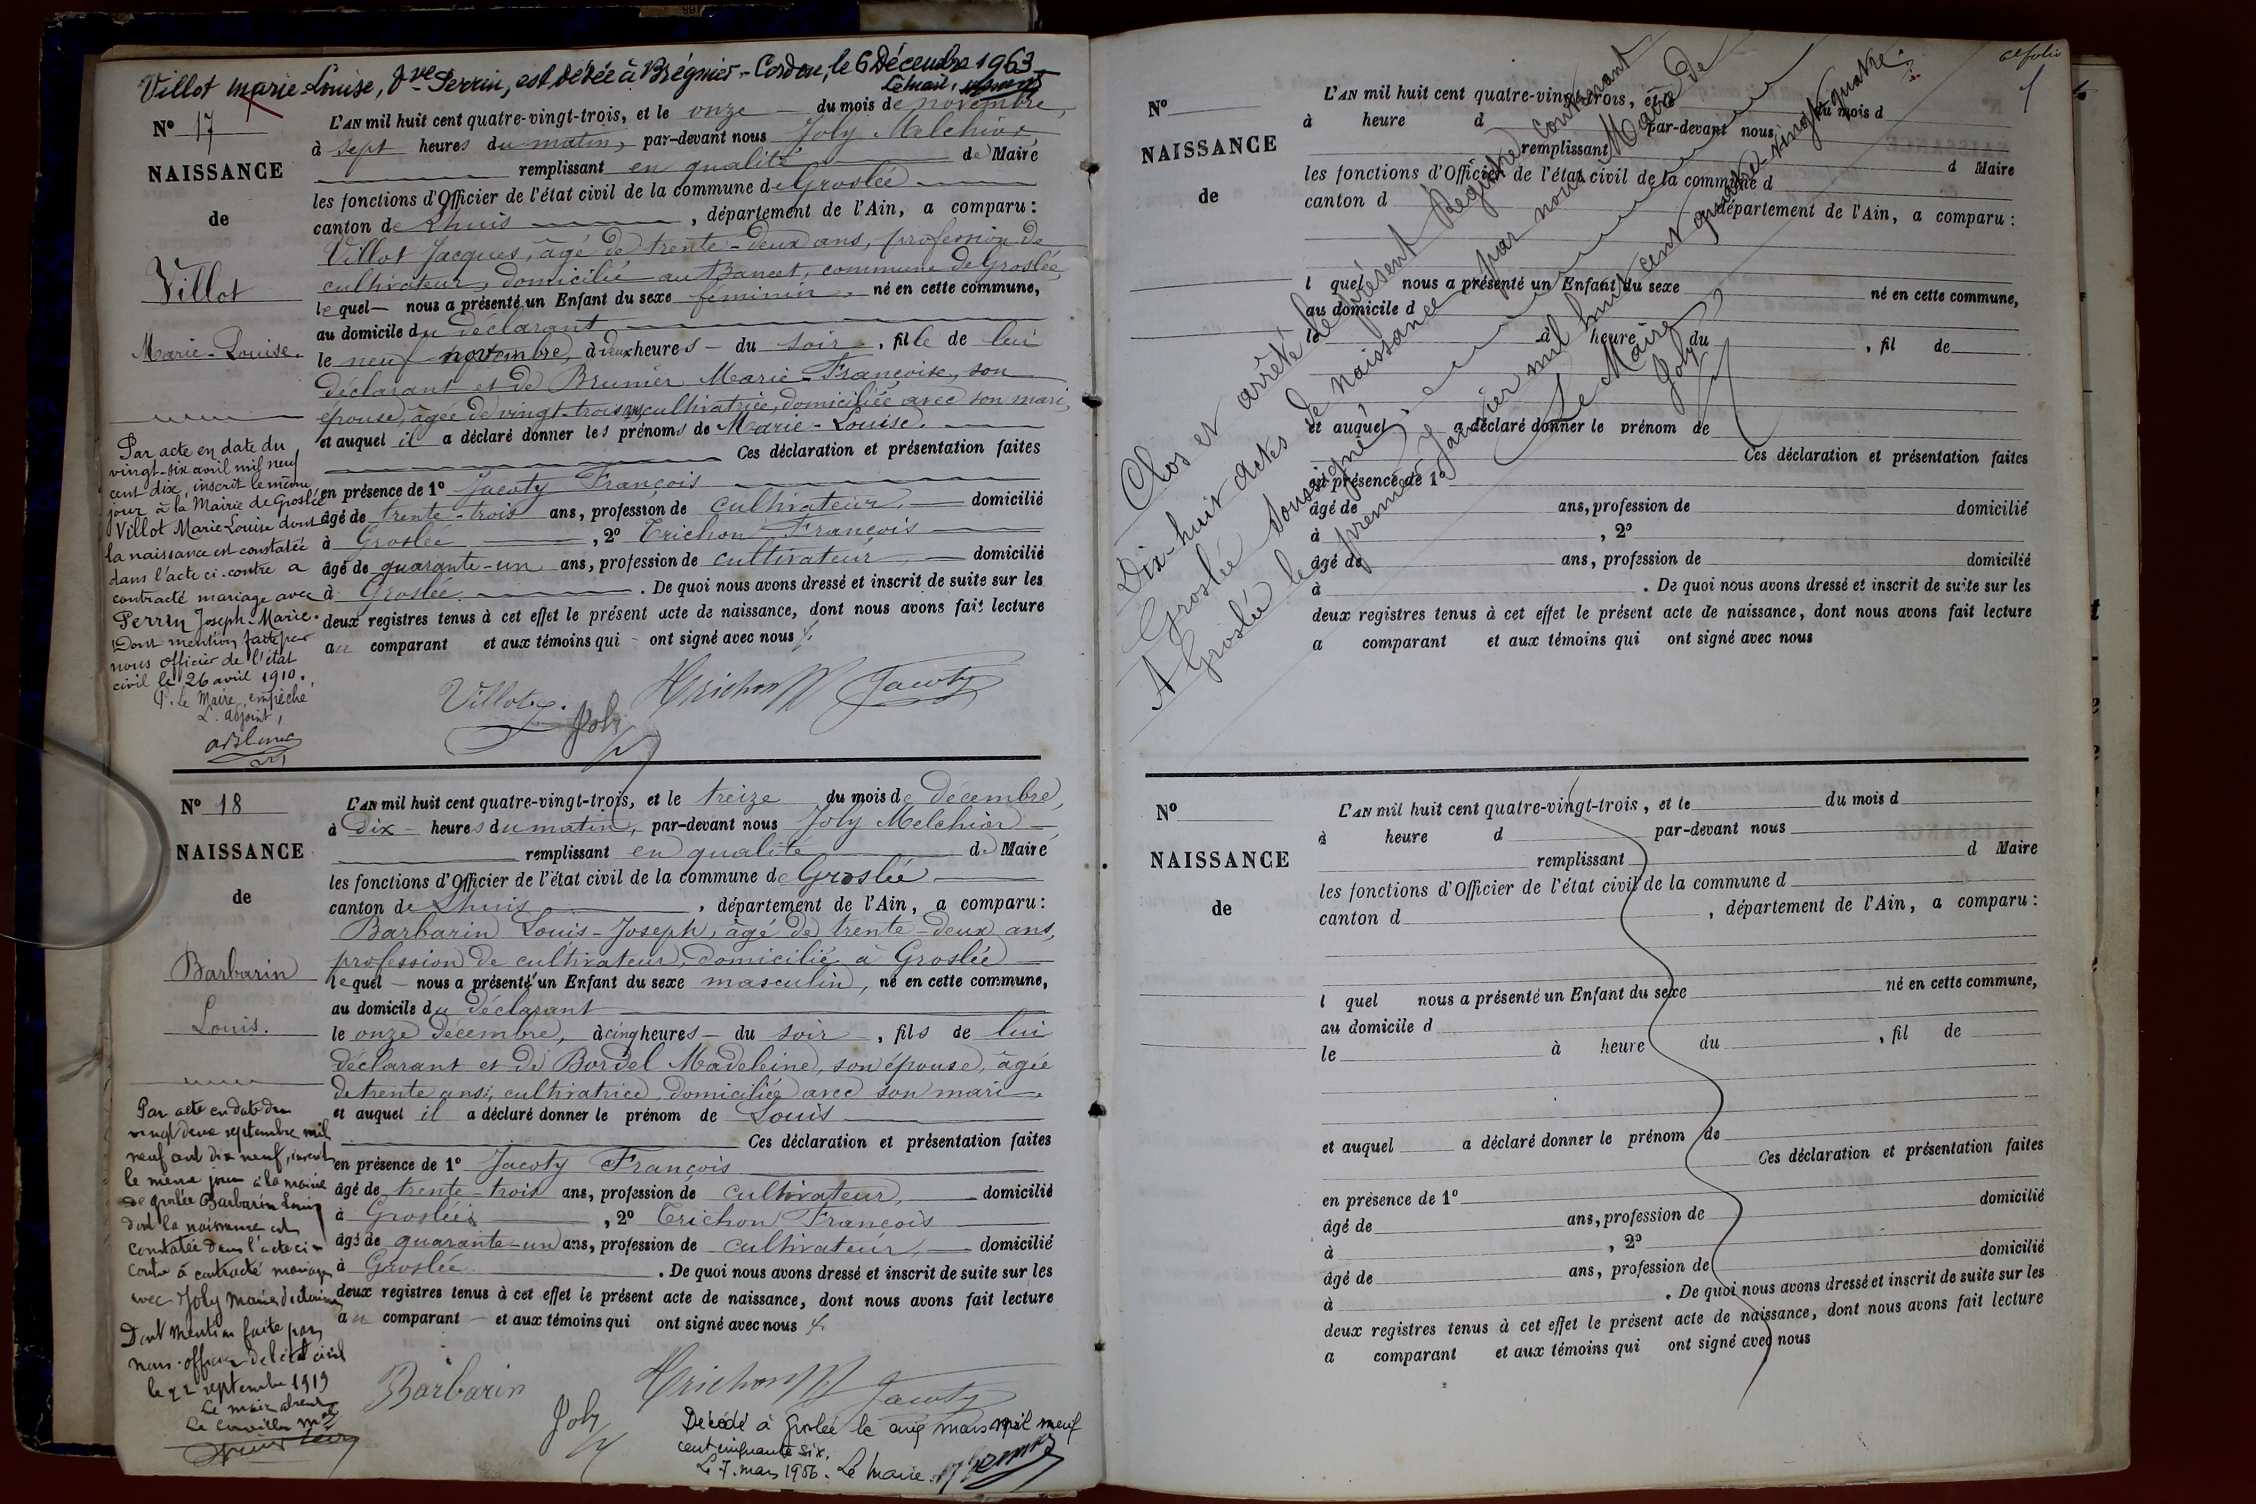 Villot Marie-Louise, Vve Perrin, est décédée à Brégnier-Cordon, le 6 Décembre 1963
Le Maire,
N° 17
NAISSANCE
de
Villot
Marie-Louise.
L'AN mil huit cent quatre-vingt-trois, et le onze du mois de novembre,
à sept heures du matin, par-devant nous Joly Melchior
remplissant en qualité de Maire
les fonctions d'Officier de l'état civil de la commune de Groslée
canton de Lhuis, département de l'Ain, a comparu:
Villot Jacques, âgé de trente-deux ans, profession de
cultivateur, domicilié au Bancet, commune de Groslée,
lequel nous a présenté un Enfant du sexe féminin, né en cette commune,
au domicile du déclarant
le neuf novembre, à deux heures du soir, fille de lui
déclarant et de Brunier Marie-Françoise, son
épouse, âgée de vingt-trois ans, cultivatrice, domiciliée avec son mari,
et auquel il a déclaré donner les prénoms de Marie-Louise.
Ces déclaration et présentation faites
en présence de 1° Jacoty François
âgé de trente-trois ans, profession de cultivateur, domicilié
à Groslée, 2° Trichon François
âgé de quarante-un ans, profession de cultivateur, domicilié
à Groslée. De quoi nous avons dressé et inscrit de suite sur les
deux registres tenus à cet effet le présent acte de naissance, dont nous avons fait lecture
au comparant et aux témoins qui ont signé avec nous
Villot
Joly
Trichon
Jacoty
Par acte en date du
vingt-six avril mil neuf
cent dix, inscrit le même
jour à la Mairie de Groslée
Villot Marie Louise dont
la naissance est constatée
dans l'acte ci-contre a
contracté mariage avec
Perrin Joseph-Marie.
Dont mention faite par
nous officier de l'état
civil le 26 avril 1910.
P. le Maire empêché,
L'adjoint,
N° 18
NAISSANCE
de
Barbarin
Louis.
L'AN mil huit cent quatre-vingt-trois, et le treize du mois de décembre,
à dix heures du matin, par-devant nous Joly Melchior
remplissant en qualité de Maire
les fonctions d'Officier de l'état civil de la commune de Groslée
canton de Lhuis, département de l'Ain, a comparu:
Barbarin Louis-Joseph, âgé de trente-deux ans,
profession de cultivateur, domicilié à Groslée
lequel nous a présenté un Enfant du sexe masculin, né en cette commune,
au domicile du déclarant
le onze décembre, à cinq heures du soir, fils de lui
déclarant et de Bordel Madeleine, son épouse, âgée
de trente ans, cultivatrice, domiciliée avec son mari
et auquel il a déclaré donner le prénom de Louis
Ces déclaration et présentation faites
en présence de 1° Jacoty François
âgé de trente-trois ans, profession de cultivateur, domicilié
à Groslée, 2° Trichon François
âgé de quarante-un ans, profession de cultivateur, domicilié
à Groslée. De quoi nous avons dressé et inscrit de suite sur les
deux registres tenus à cet effet le présent acte de naissance, dont nous avons fait lecture
au comparant et aux témoins qui ont signé avec nous
Barbarin
Joly
Trichon
Jacoty
Par acte en date du
vingt deux septembre mil
neuf cent dix neuf, inscrit
le même jour à la mairie
de groslée Barbarin Louis
dont la naissance est
constatée dans l'acte ci-
contre a contracté mariage
avec Joly Marie
Dont mention faite par
nous officier de l'état civil
le 22 septembre 1919
Le maire absent
Le Conseiller Mal
Décédé à Groslée le cinq mars mil neuf
cent cinquante six.
Le 7 mars 1956. Le Maire.
ce folio
1
N°
NAISSANCE
de
L'AN mil huit cent quatre-vingt-trois, et le du mois d
à heure d par-devant nous
remplissant d Maire
les fonctions d'Officier de l'état civil de la commune d
canton d département de l'Ain, a comparu:
l quel nous a présenté un Enfant du sexe né en cette commune,
au domicile d
le à heure du, fil de
et auquel a déclaré donner le prénom de
Ces déclaration et présentation faites
en présence de 1°
âgé de ans, profession de domicilié
à, 2°
âgé de ans, profession de domicilié
à. De quoi nous avons dressé et inscrit de suite sur les
deux registres tenus à cet effet le présent acte de naissance, dont nous avons fait lecture
a comparant et aux témoins qui ont signé avec nous
Clos et arrêté le présent Registre contenant
Dix-huit actes de naissance par nous Maire de
Groslée soussigné.
A Groslée le premier Janvier mil huit cent quatre-vingt-quatre.
Le Maire
Joly
N°
NAISSANCE
de
L'AN mil huit cent quatre-vingt-trois, et le du mois d
à heure d par-devant nous
remplissant d Maire
les fonctions d'Officier de l'état civil de la commune d
canton d, département de l'Ain, a comparu:
l quel nous a présenté un Enfant du sexe né en cette commune,
au domicile d
le à heure du, fil de
et auquel a déclaré donner le prénom de
Ces déclaration et présentation faites
en présence de 1°
âgé de ans, profession de domicilié
à, 2°
âgé de ans, profession de domicilié
à. De quoi nous avons dressé et inscrit de suite sur les
deux registres tenus à cet effet le présent acte de naissance, dont nous avons fait lecture
a comparant et aux témoins qui ont signé avec nous